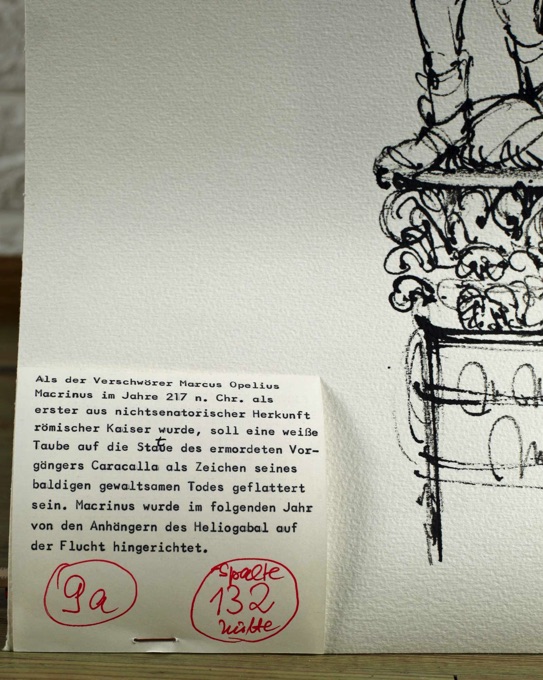 Als der Verschwörer Marcus Opelius
Macrinus im Jahre 217 n. Chr. als
erster aus nichtsenatorischer Herkunft
römischer Kaiser wurde, soll eine weiße
Taube auf die Statue des ermordeten Vor-
gängers Caracalla als Zeichen seines
baldigen gewaltsamen Todes geflattert
sein. Macrinus wurde im folgenden Jahr
von den Anhängern des Heliogabal auf
der Flucht hingerichtet.
9a
Spalte
132
mitte